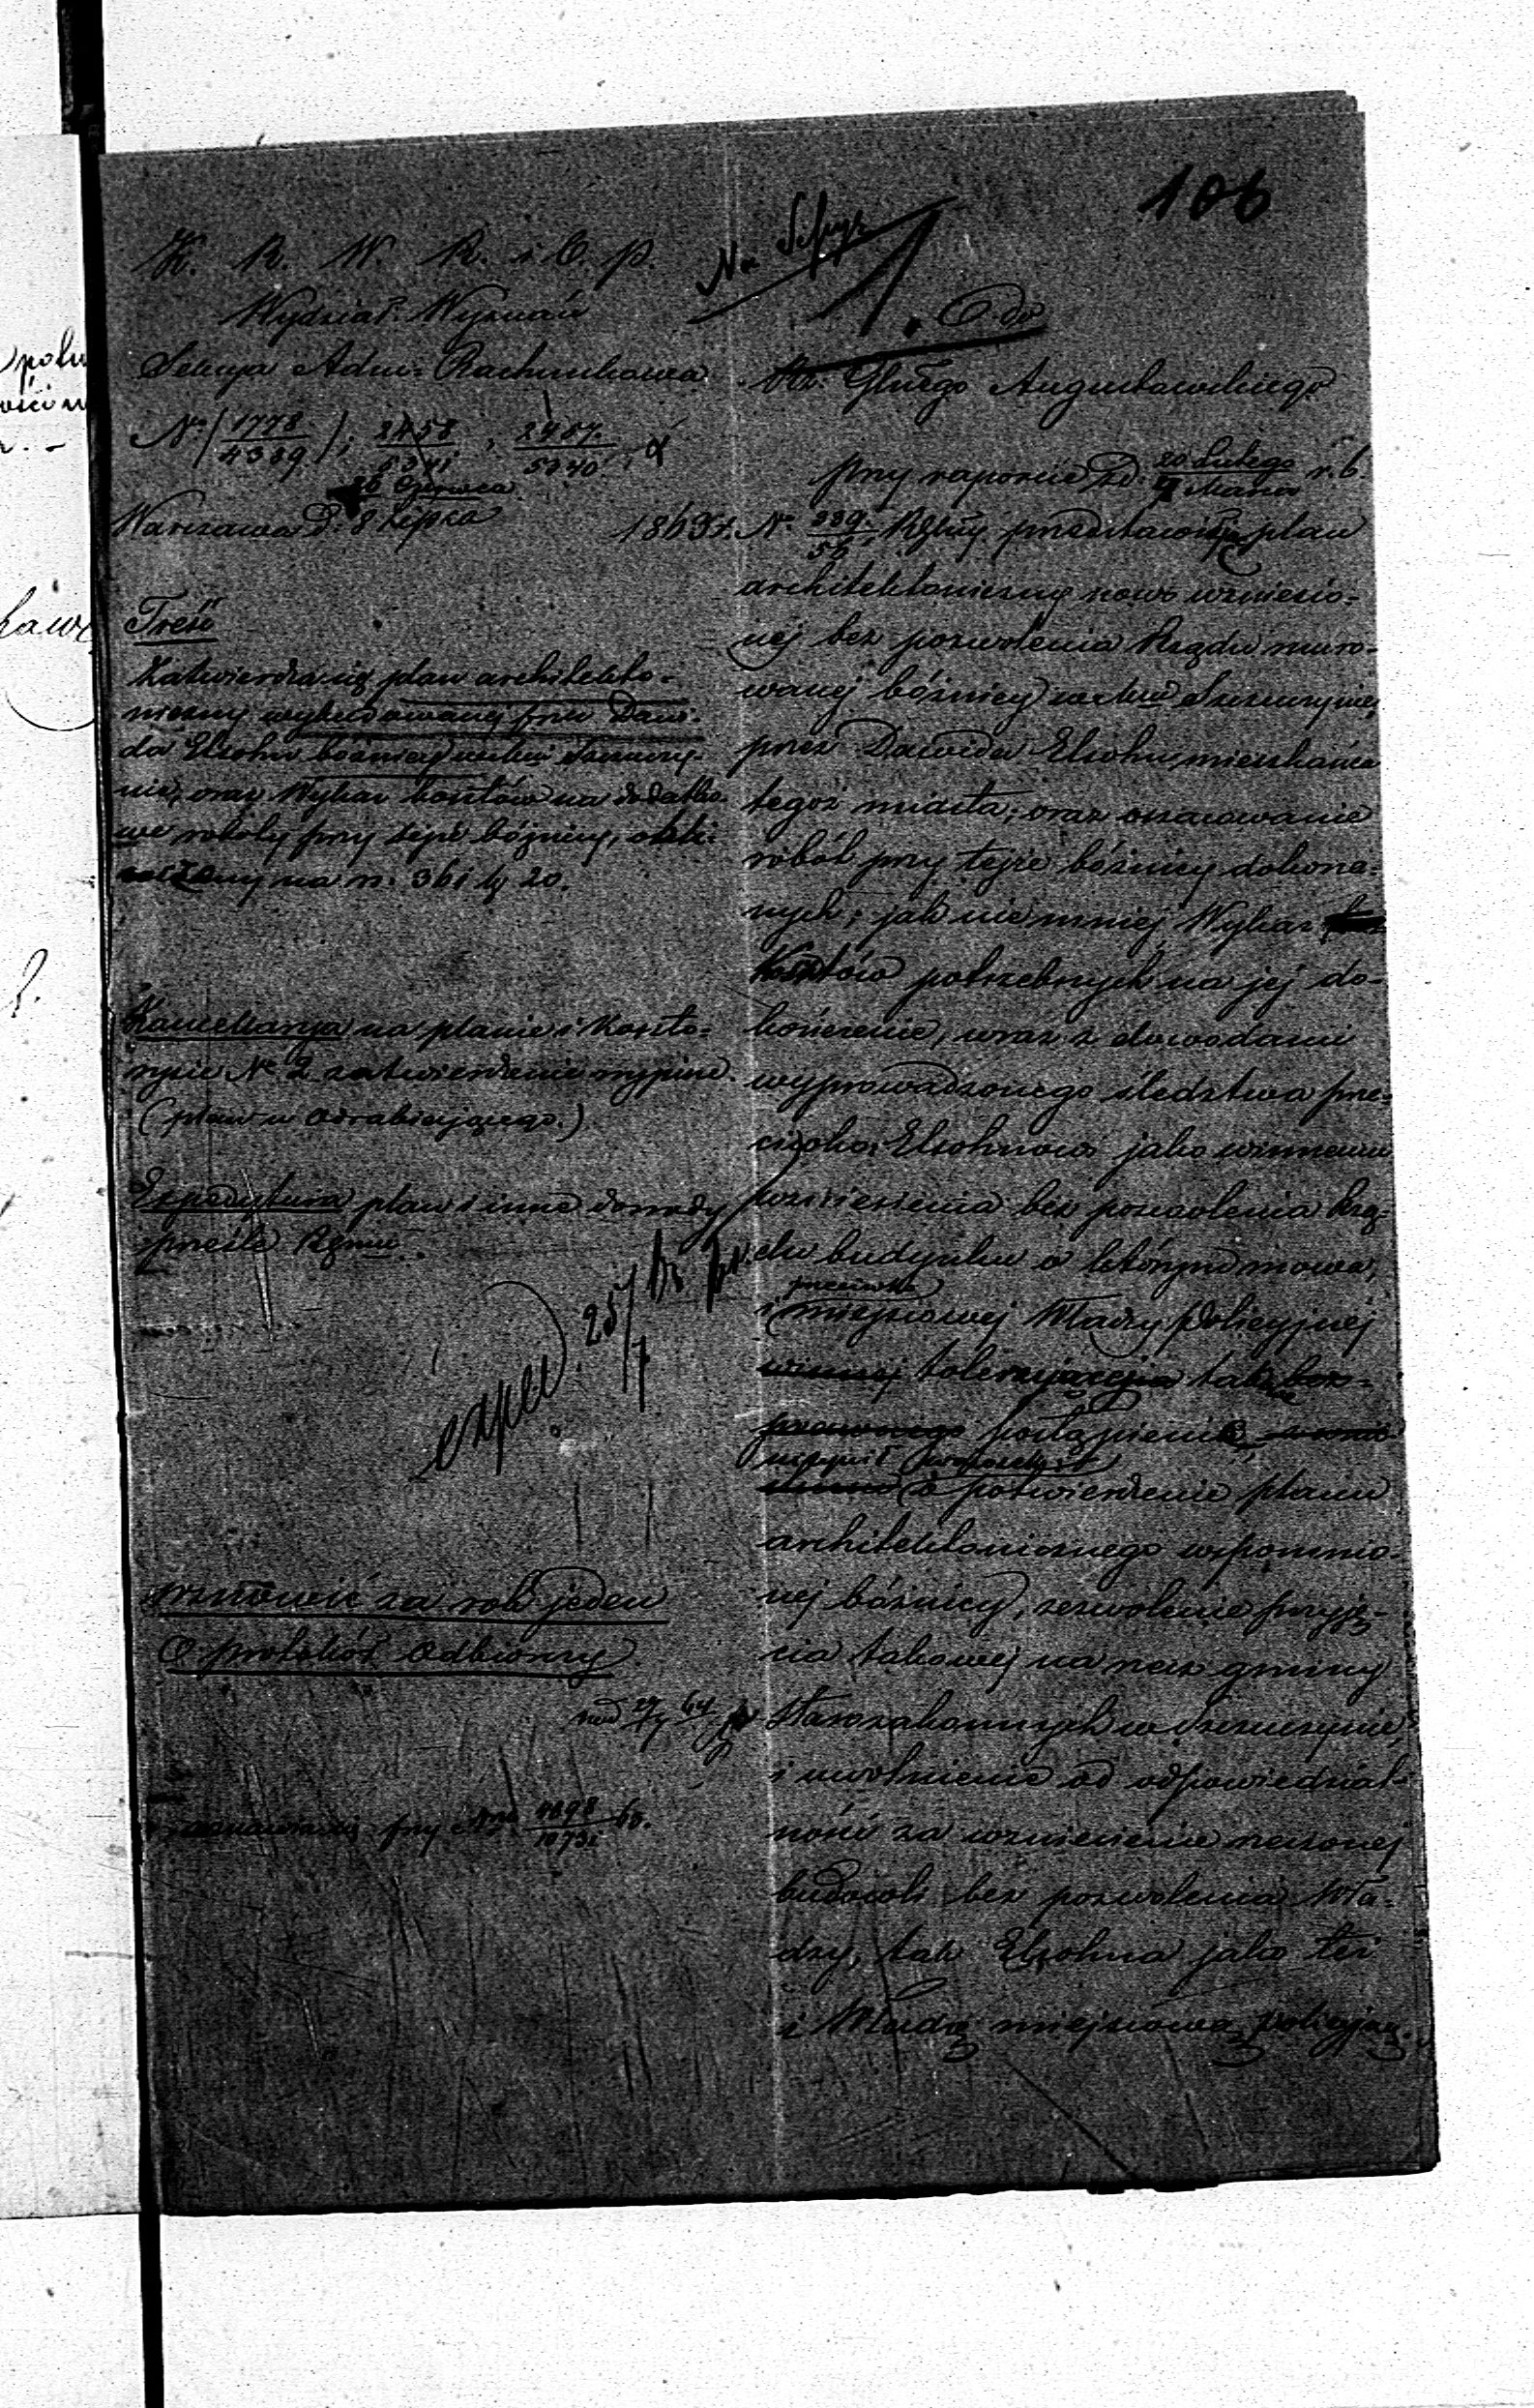 106
K. R. W. R. i O. P.
Wydział Wyznań
Sekcya Adm: Rachunkowa
No (1778/4339); 2458/5341, 2457/5340
26 Czerwca
Warszawa D: 8 Lipca 1863 r.
Treść
Zatwierdza się plan architekto-
niczny wybudowanej przez Dawi-
da Elsohn bóżnicy w
nie, oraz Wykaz kosztów na dodatko-
we roboty przy tejże bóżnicy,
na rs. 361 k 20.
Kancellarya na planie i koszto-
rysie No 2 zatwierdzenie wypisze.
(plan u odrabiającego.)
Expedytura plan i inne dowody
prześle
exped. 25/7 63
wznowić za rok jeden
O protokół odbiorczy
27/7 64
przy 4698/10731
1. O do
Rz. Gbnego Augustowskiego
Przy raporcie z d. 20 Lutego/4 Marca r. b.
No 339/56, Rząd Gbny przedstawił plan
architektoniczny nowo wzniesio-
nej bez pozwolenia Rządu muro-
wanej bóżnicy w Szczuczynie,
przez Dawida Elsohn, mieszkańca
tegoż miasta; oraz oszacowanie
robót przy tejże bóżnicy dokona-
nych; jak nie mniej Wykaz
Kosztów potrzebnych na jej do-
kończenie, wraz z dowodami
wyprowadzonego śledztwa prze-
ciwko Elsohnowi jako winnemu
wzniesienia bez pozwolenia Rzą-
du budynku o którym mowa,
przeciwko
i miejscowej Władzy Policyjnej
winnej tolerującej takie bez-
prawnego postąpienie,
uczynił wniosek
o potwierdzenie planu
architektonicznego wspomnio-
nej bóżnicy, zezwolenie przyję-
cia takowej na rzecz gminy
Starozakonnych w Szczuczynie,
i uwolnienie od odpowiedzial-
ności za wzniesienie rzeczonej
budowli bez pozwolenia Wła-
dzy, tak Elsohna jako też
i Władzę miejscową policyjną.